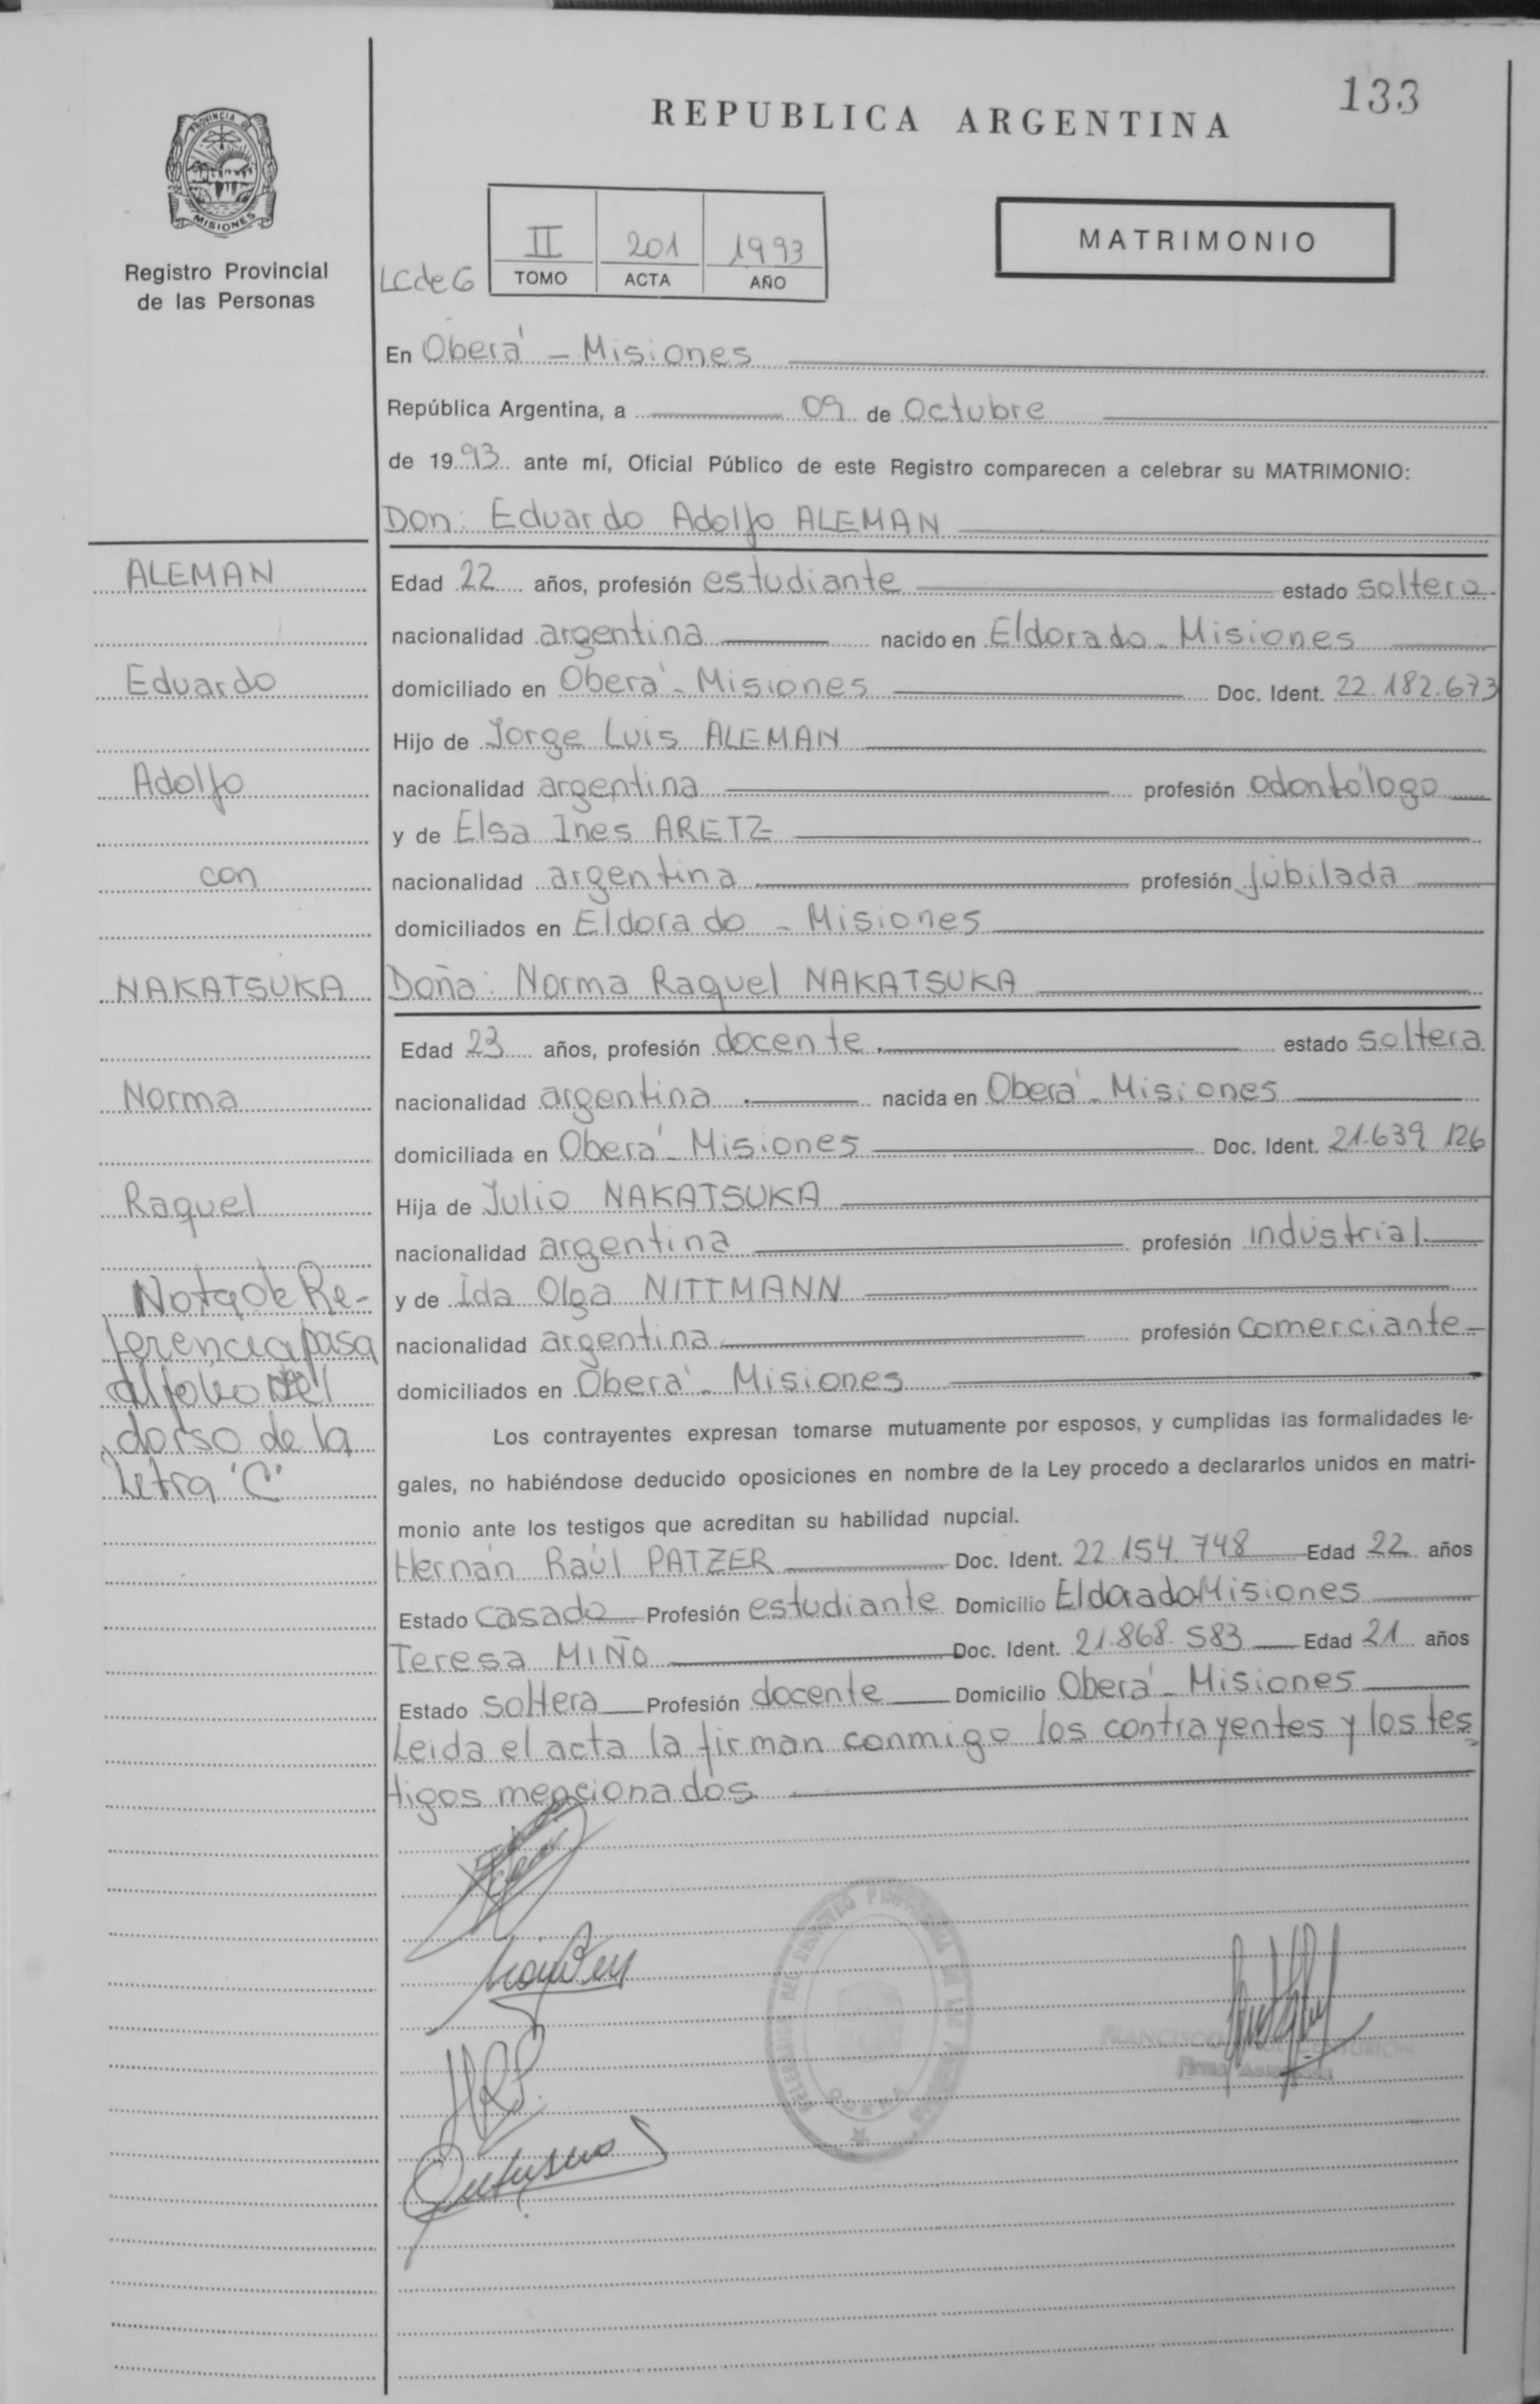 133
REPUBLICA ARGENTINA
PROVINCIA DE
MISIONES
Registro Provincial
de las Personas
MATRIMONIO
LCdeG
II 201 1993
TOMO ACTA AÑO
En Oberá - Misiones
República Argentina, a 09 de Octubre
de 1993 ante mí, Oficial Público de este Registro comparecen a celebrar su MATRIMONIO:
Don: Eduardo Adolfo ALEMAN
Edad 22 años, profesión estudiante estado soltero
nacionalidad argentina nacido en Eldorado - Misiones
domiciliado en Oberá - Misiones Doc. Ident. 22.182.673
Hijo de Jorge Luis ALEMAN
nacionalidad argentina profesión odontólogo
y de Elsa Ines ARETZ
nacionalidad argentina profesión jubilada
domiciliados en Eldorado - Misiones
Doña: Norma Raquel NAKATSUKA
Edad 23 años, profesión docente estado soltera
nacionalidad argentina nacida en Oberá - Misiones
domiciliada en Oberá - Misiones Doc. Ident. 21.639 126
Hija de Julio NAKATSUKA
nacionalidad argentina profesión industrial
y de Ida Olga NITTMANN
nacionalidad argentina profesión comerciante
domiciliados en Oberá - Misiones
Los contrayentes expresan tomarse mutuamente por esposos, y cumplidas las formalidades le-
gales, no habiéndose deducido oposiciones en nombre de la Ley procedo a declararlos unidos en matri-
monio ante los testigos que acreditan su habilidad nupcial.
Hernán Raúl PATZER Doc. Ident. 22.154.748 Edad 22 años
Estado casado Profesión estudiante Domicilio Eldorado Misiones
Teresa MIÑO Doc. Ident. 21.868.583 Edad 21 años
Estado soltera Profesión docente Domicilio Oberá - Misiones
Leida el acta la firman conmigo los contrayentes y los tes
tigos mencionados
ALEMAN
Eduardo
Adolfo
con
NAKATSUKA
Norma
Raquel
Nota de Re-
ferencia pasa
al folio del
dorso de la
Letra "C"
FRANCISCO CENTURION